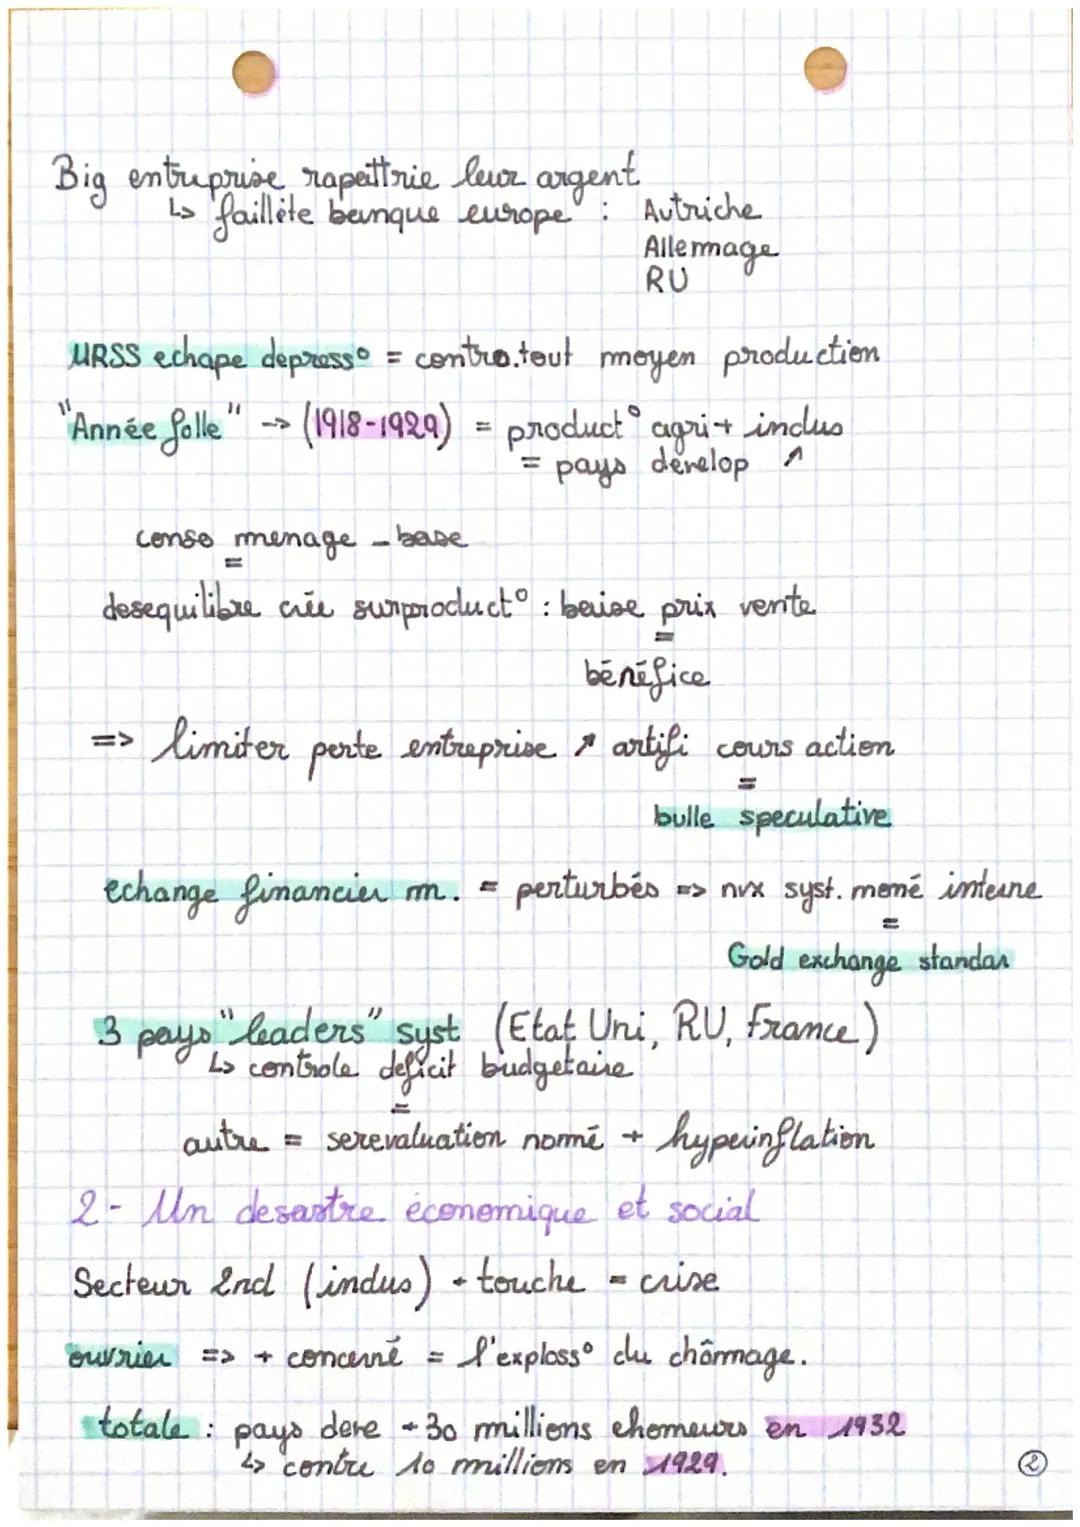 Big entreprise rapattrie leur argent
↳ faillite banque europe : Autriche
Allemage
RU
URSS echape depress° = contro. tout moyen production
"Année folle" → (1918-1929) = product° agri + indus
= pays develop ↗
conso menage - base
=
desequilibre crée surproduct° : baise prix vente
=
bénéfice
=> limiter perte entreprise ↗ artifi cours action
=
bulle speculative
echange financier m. = perturbés => nvx syst. moné interne
=
Gold exchange standar
3 pays "leaders" syst (Etat Uni, RU, France)
↳ controle deficit budgetaire
=
autre = serevaluation nomé + hyperinflation
2- Un desastre économique et social
Secteur 2nd (indus) + touche = crise
ouvrier => + concerné = l'exploss° du chômage.
totale : pays deve + 30 millions chomeurs en 1932
↳ contre 10 millions en 1929.
2